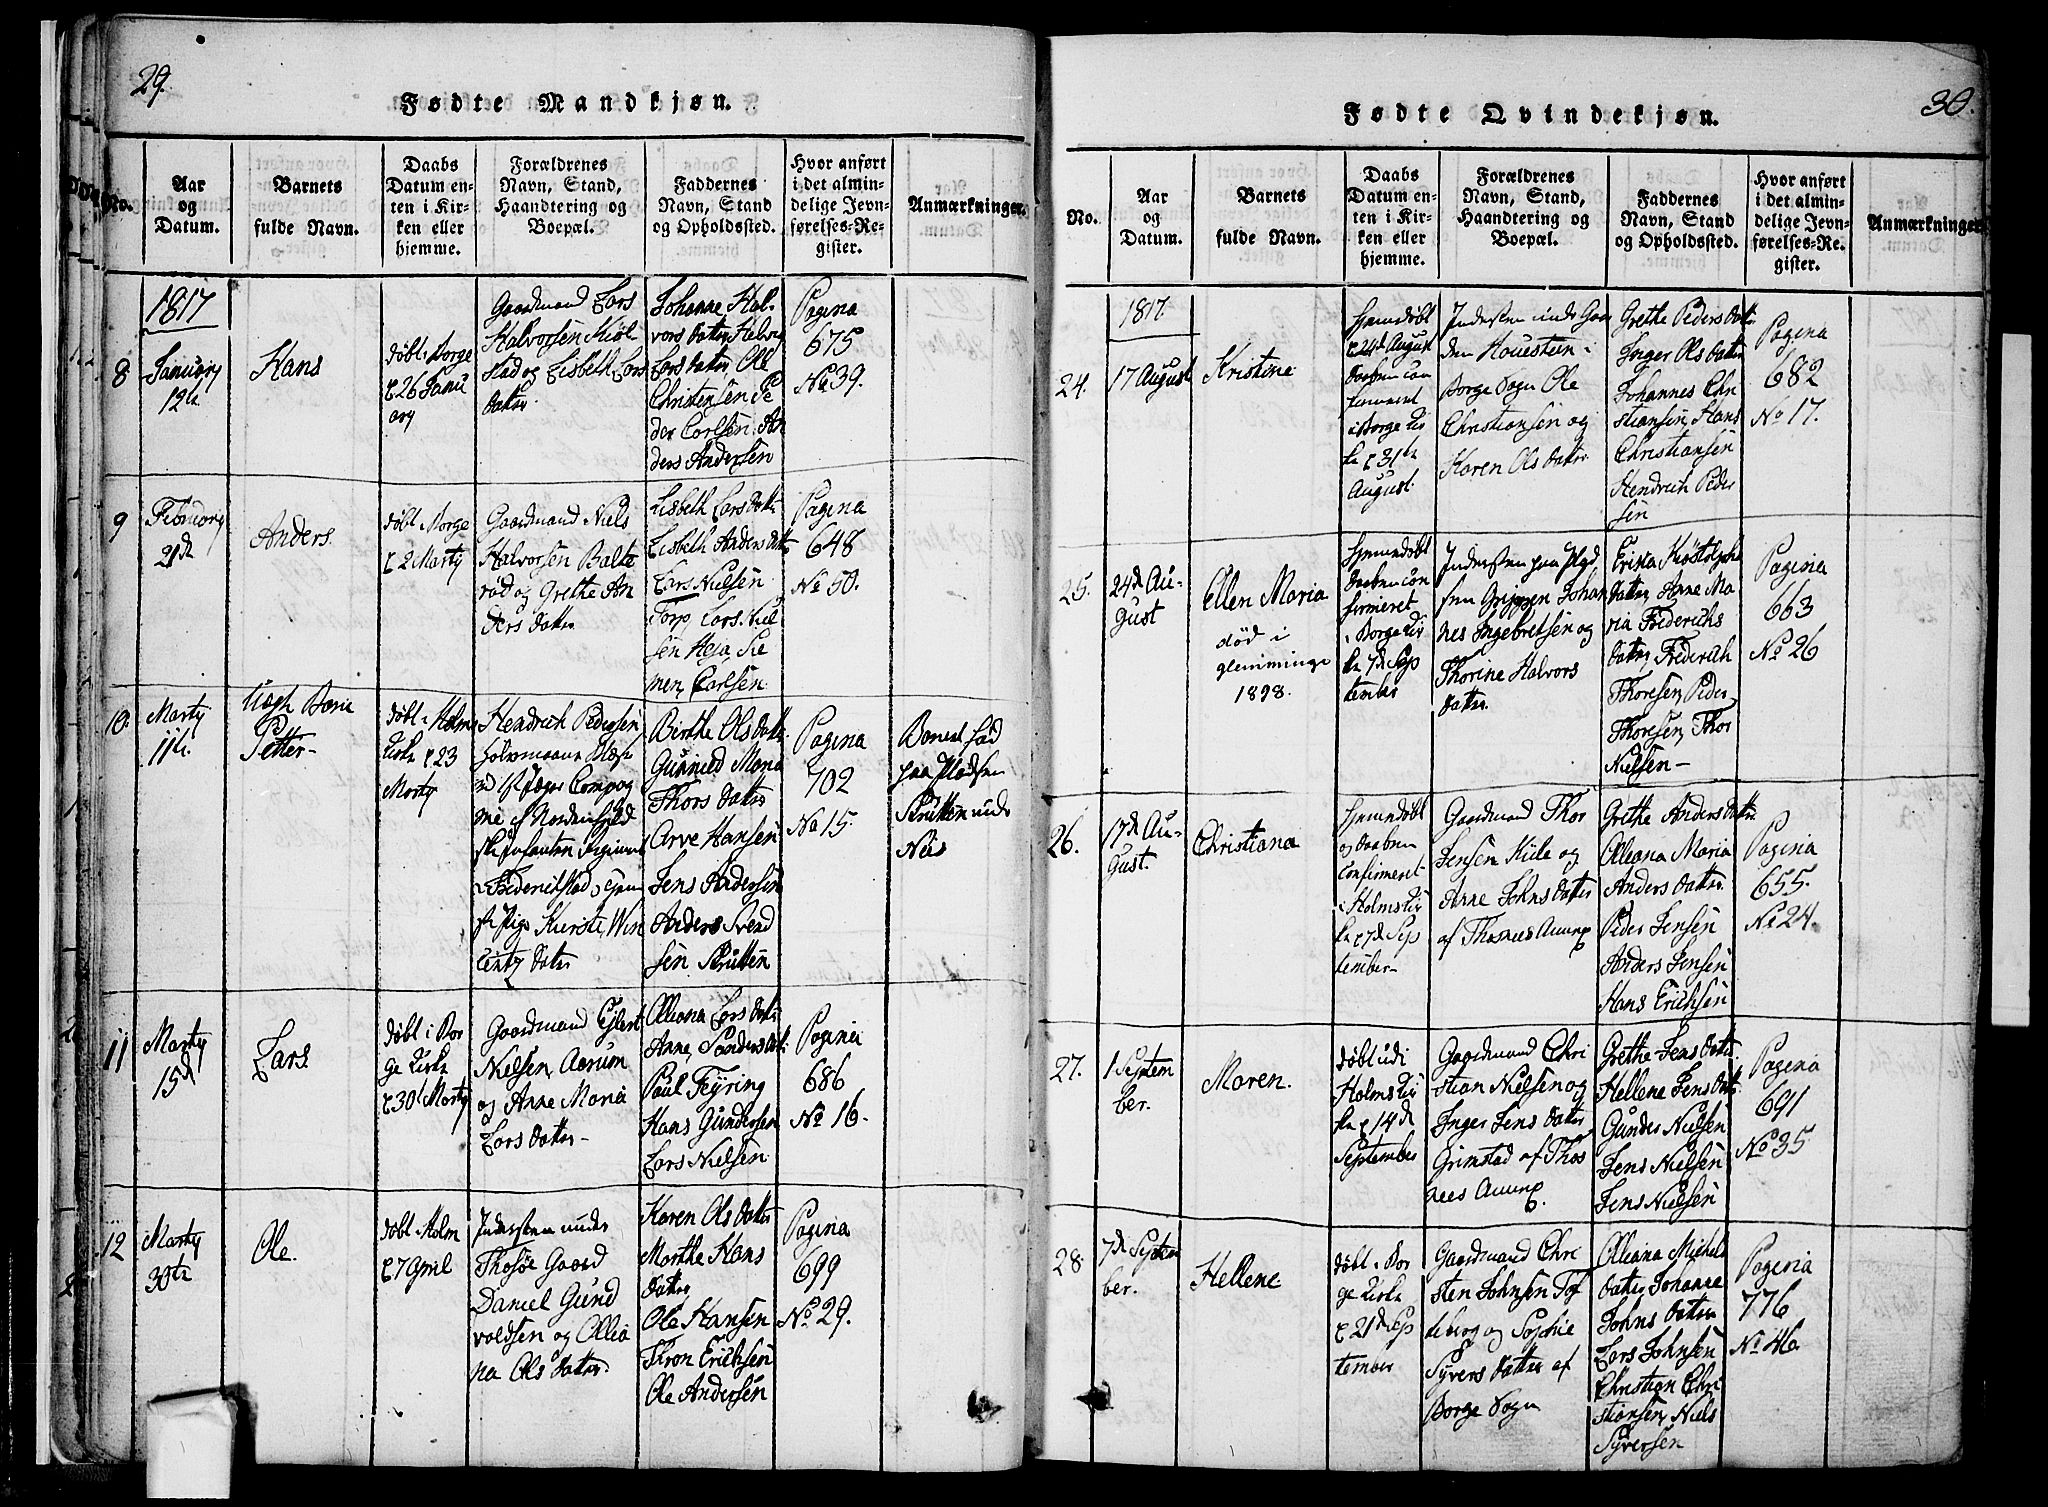 29.
Fødte Mandkjøn.
No.
Aar
og
Datum.
Barnets
fulde Navn.
Daabs
Datum en-
ten i Kir-
ken eller
hjemme.
Forældrenes
Navn, Stand,
Haandtering og
Boepæl.
Faddernes
Navn, Stand
og Opholdssted.
Hvor anført
i det almin-
delige Jevn-
førelses-Re-
gister.
Anmærkninger.
1817
8
Januory
12te
Hans
døbt i Borge
26 Janu
ary
Gaardmand Lars
Halvorsen Kiøl
stad og Lisbeth Lars
datter
Johanne Hal
vors datter
Lars datter Ole
Christensen Pe
der Carlsen An
ders Andersen
Pagina
675
No 39.
9
Februory
21de
Anders
døbt i Borge
2 Marty
Gaardmand Niels
Halvorsen Balte
rød og Grethe An
ders datter
Lisbeth Lars datter
Lisbeth Anders datter
Lars Nielsen
Torp Lars Niel
sen Heja, Si
men Carlsen
Pagina
648
No 50.
10.
Marty
11te
Uægte Barn
Petter
døbt i Holm
Kirke 23
Marty
Hendrich Pedersen
Kierstie Win
centz datter
Birthe Ols datter
Gunnild Maria
Thors datter
Arve Hansen
Jens Andersen
Anders Svend
sen Skutten
Pagina
702
No 15.
Barnet fød
paa Pladsen
Skutten under
Næs
11
Marty
15de
Lars
døbt i Bor
ge Kirke
30 Marty
Gaardmand Ejlert
Nielsen Aarum
og Anne Maria
Lars datter
Olleana Lars datter
Anne Sanders datter
Paul Feyring
Hans Gundersen
Lars Nielsen
Pagina
686
No 16.
12
Marty
30te
Ole.
døbt i Holm
7 April
Indersten under
Thosøe Gaard
Daniel Gund
voldsen og Ollia
na Ols datter
Karen Ols datter
Marthe Hans
datter
Ole Hansen
Thron Erichsen
Ole Andersen
Pagina
699
No 29.
30.
Fødte Qvindekjøn.
No.
Aar
og
Datum.
Barnets
fulde Navn.
Daabs
Datum en-
ten i Kir-
ken eller
hjemme.
Forældrenes
Navn, Stand,
Haandtering og
Boepæl.
Faddernes
Navn, Stand
og Opholdssted.
Hvor anført
i det almin-
delige Jevn-
førelses-Re-
gister.
Anmærkninger
1817.
24.
17 August
Kristine
hjemdøbt
24de August
daaben con
firmeret
i Borge Kir
ke 31te
August
Indersten under Gaar
den Houesteen i
Borge Sogn Ole
Christiansen og
Karen Ols datter
Grethe Peders datter
Inger Ols datter
Johannes Chri
stiansen, Hans
Christiansen
Hendrich Peder
sen
Pagina
682
No 17.
25.
24de Au-
gust
Ellen Maria
død i
glemminge
1898.
hjemmdøbt
daaben con
firmeret
i Borge Kir
ke 7de Sep
tember
Indersten paa Plad
sen Grippen Johan
nes Ingebretsen og
Thorine Halvors
datter
datter Anne Ma
ria Friderichs
datter, Friderich
Thoresen, Peder
Thoresen, Thor
Nielsen
Pagina
663
No 26
26.
17de Au-
gust.
Christiana
hjemmdøbt
og daaben
confirmeret
i Holms Kir
ke 7de Sep
tember
Gaardmand Thor
Jensen Kiile og
Anne Johns datter
af Thosnes Annex
Grethe Anders datter
Olleana Maria
Anders datter
Peder Jensen
Anders Jensen
Hans Erichsen
Pagina
655.
No 24.
27.
1 Septem
ber.
Maren.
døbt udi
Holms Kir
ke 14de
September
Gaardmand Chri
stian Nielsen og
Inger Jens datter
Grimstad af Thos
nees Annex.
Grethe Jens datter
Hellene Jens datter
Gunder Nielsen
Jens Nielsen
Jens Nielsen
Pagina
691
No 35
28.
7de Septem
ber.
Hellene
døbt i Bor
ge Kirke
21de Sep
tember
Gaardmand Chri
sten Johnsen Tof
teberg og Sophie
Syvers datter af
Borge Sogn
Olleana Michels
datter Johanne
Johns datter
Lars Johnsen
Christian Chri
stiansen, Niels
Syversen
Pagina
776
No 46.